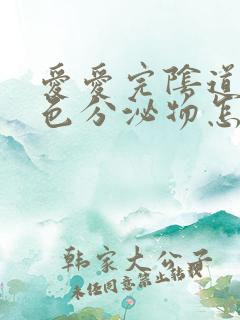 愛愛完陰道
色分泌物怎
韩家大公子
未经同意禁止转载